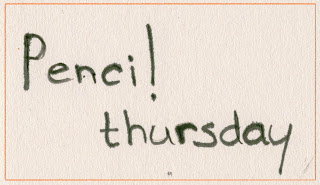 Penci!
thursday